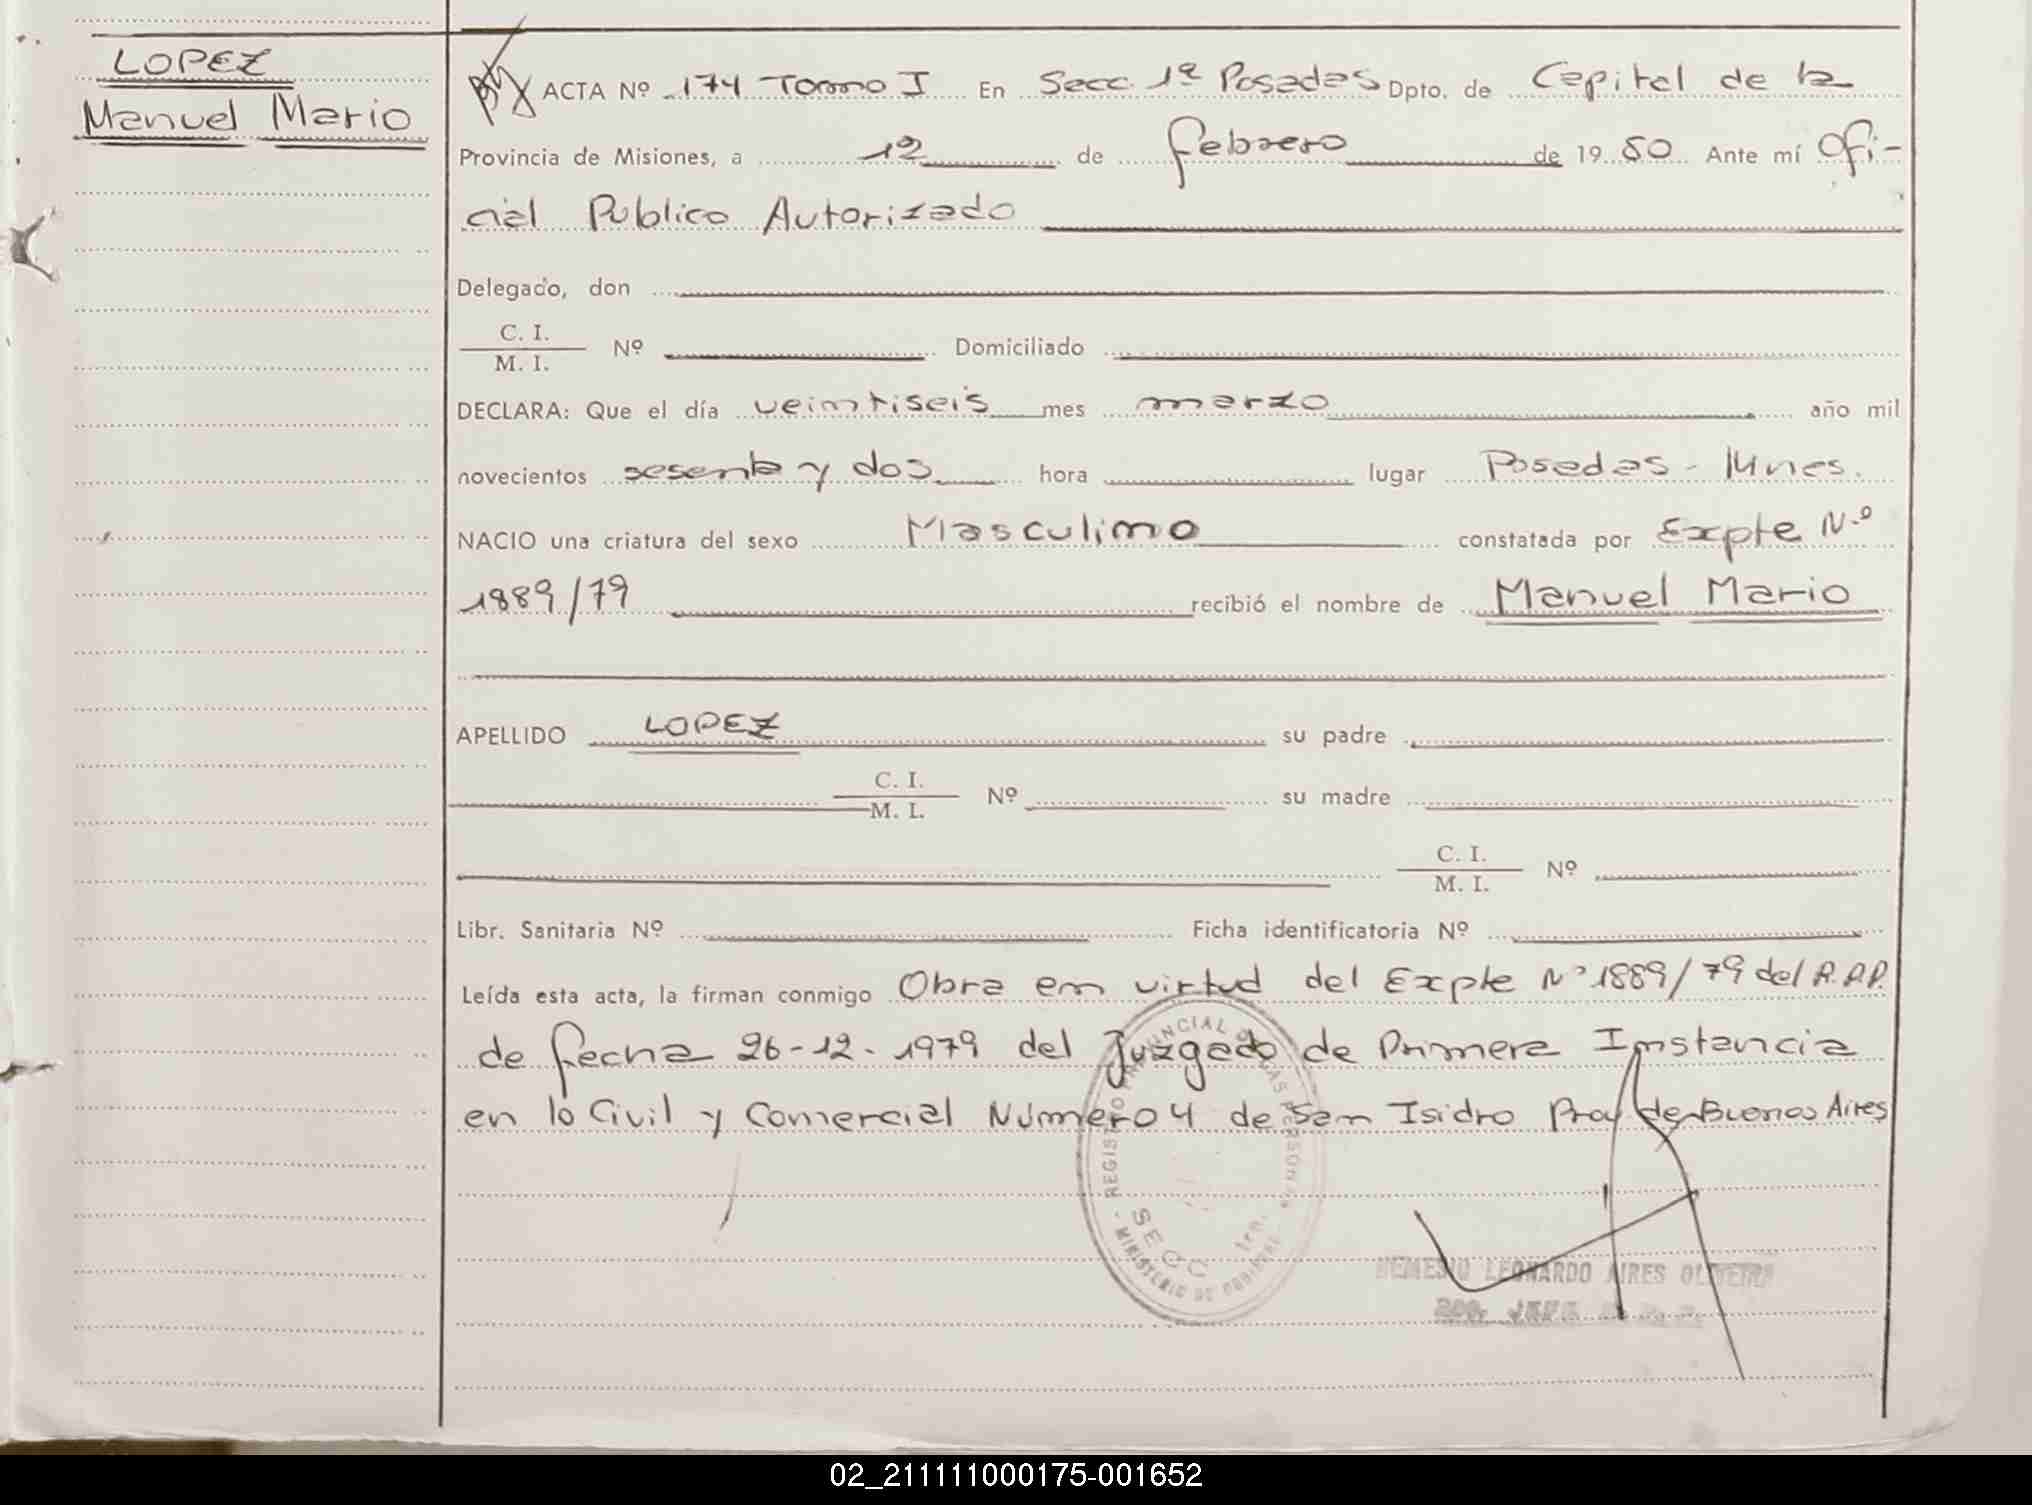 LOPEZ
Manuel Mario
ACTA Nº 174 Tomo I En Secc. 1ª Posadas Dpto. de Capital de la
Provincia de Misiones, a 12 de febrero de 1980 Ante mí Ofi-
cial Publico Autorizado
Delegado, don
C. I.
M. I. Nº Domiciliado
DECLARA: Que el día veintiseis mes marzo año mil
novecientos sesenta y dos hora lugar Posadas - Mnes.
NACIO una criatura del sexo Masculino constatada por Expte Nº
1889/79 recibió el nombre de Manuel Mario
APELLIDO LOPEZ su padre
C. I.
M. I. Nº su madre
C. I.
M. I. Nº
Libr. Sanitaria Nº Ficha identificatoria Nº
Leída esta acta, la firman conmigo Obra en virtud del Expte Nº 1889/79 del R.P.P.
de fecha 26-12-1979 del Juzgado de Primera Instancia
en lo Civil y Comercial Número 4 de San Isidro Prov de Buenos Aires
REGISTRO PROVINCIAL DE LAS PERSONAS
SECC. 1ra.
- MINISTERIO DE GOBIERNO -
NEMESIO LEONARDO AIRES OLIVEIRA
JEFE
02_211111000175-001652